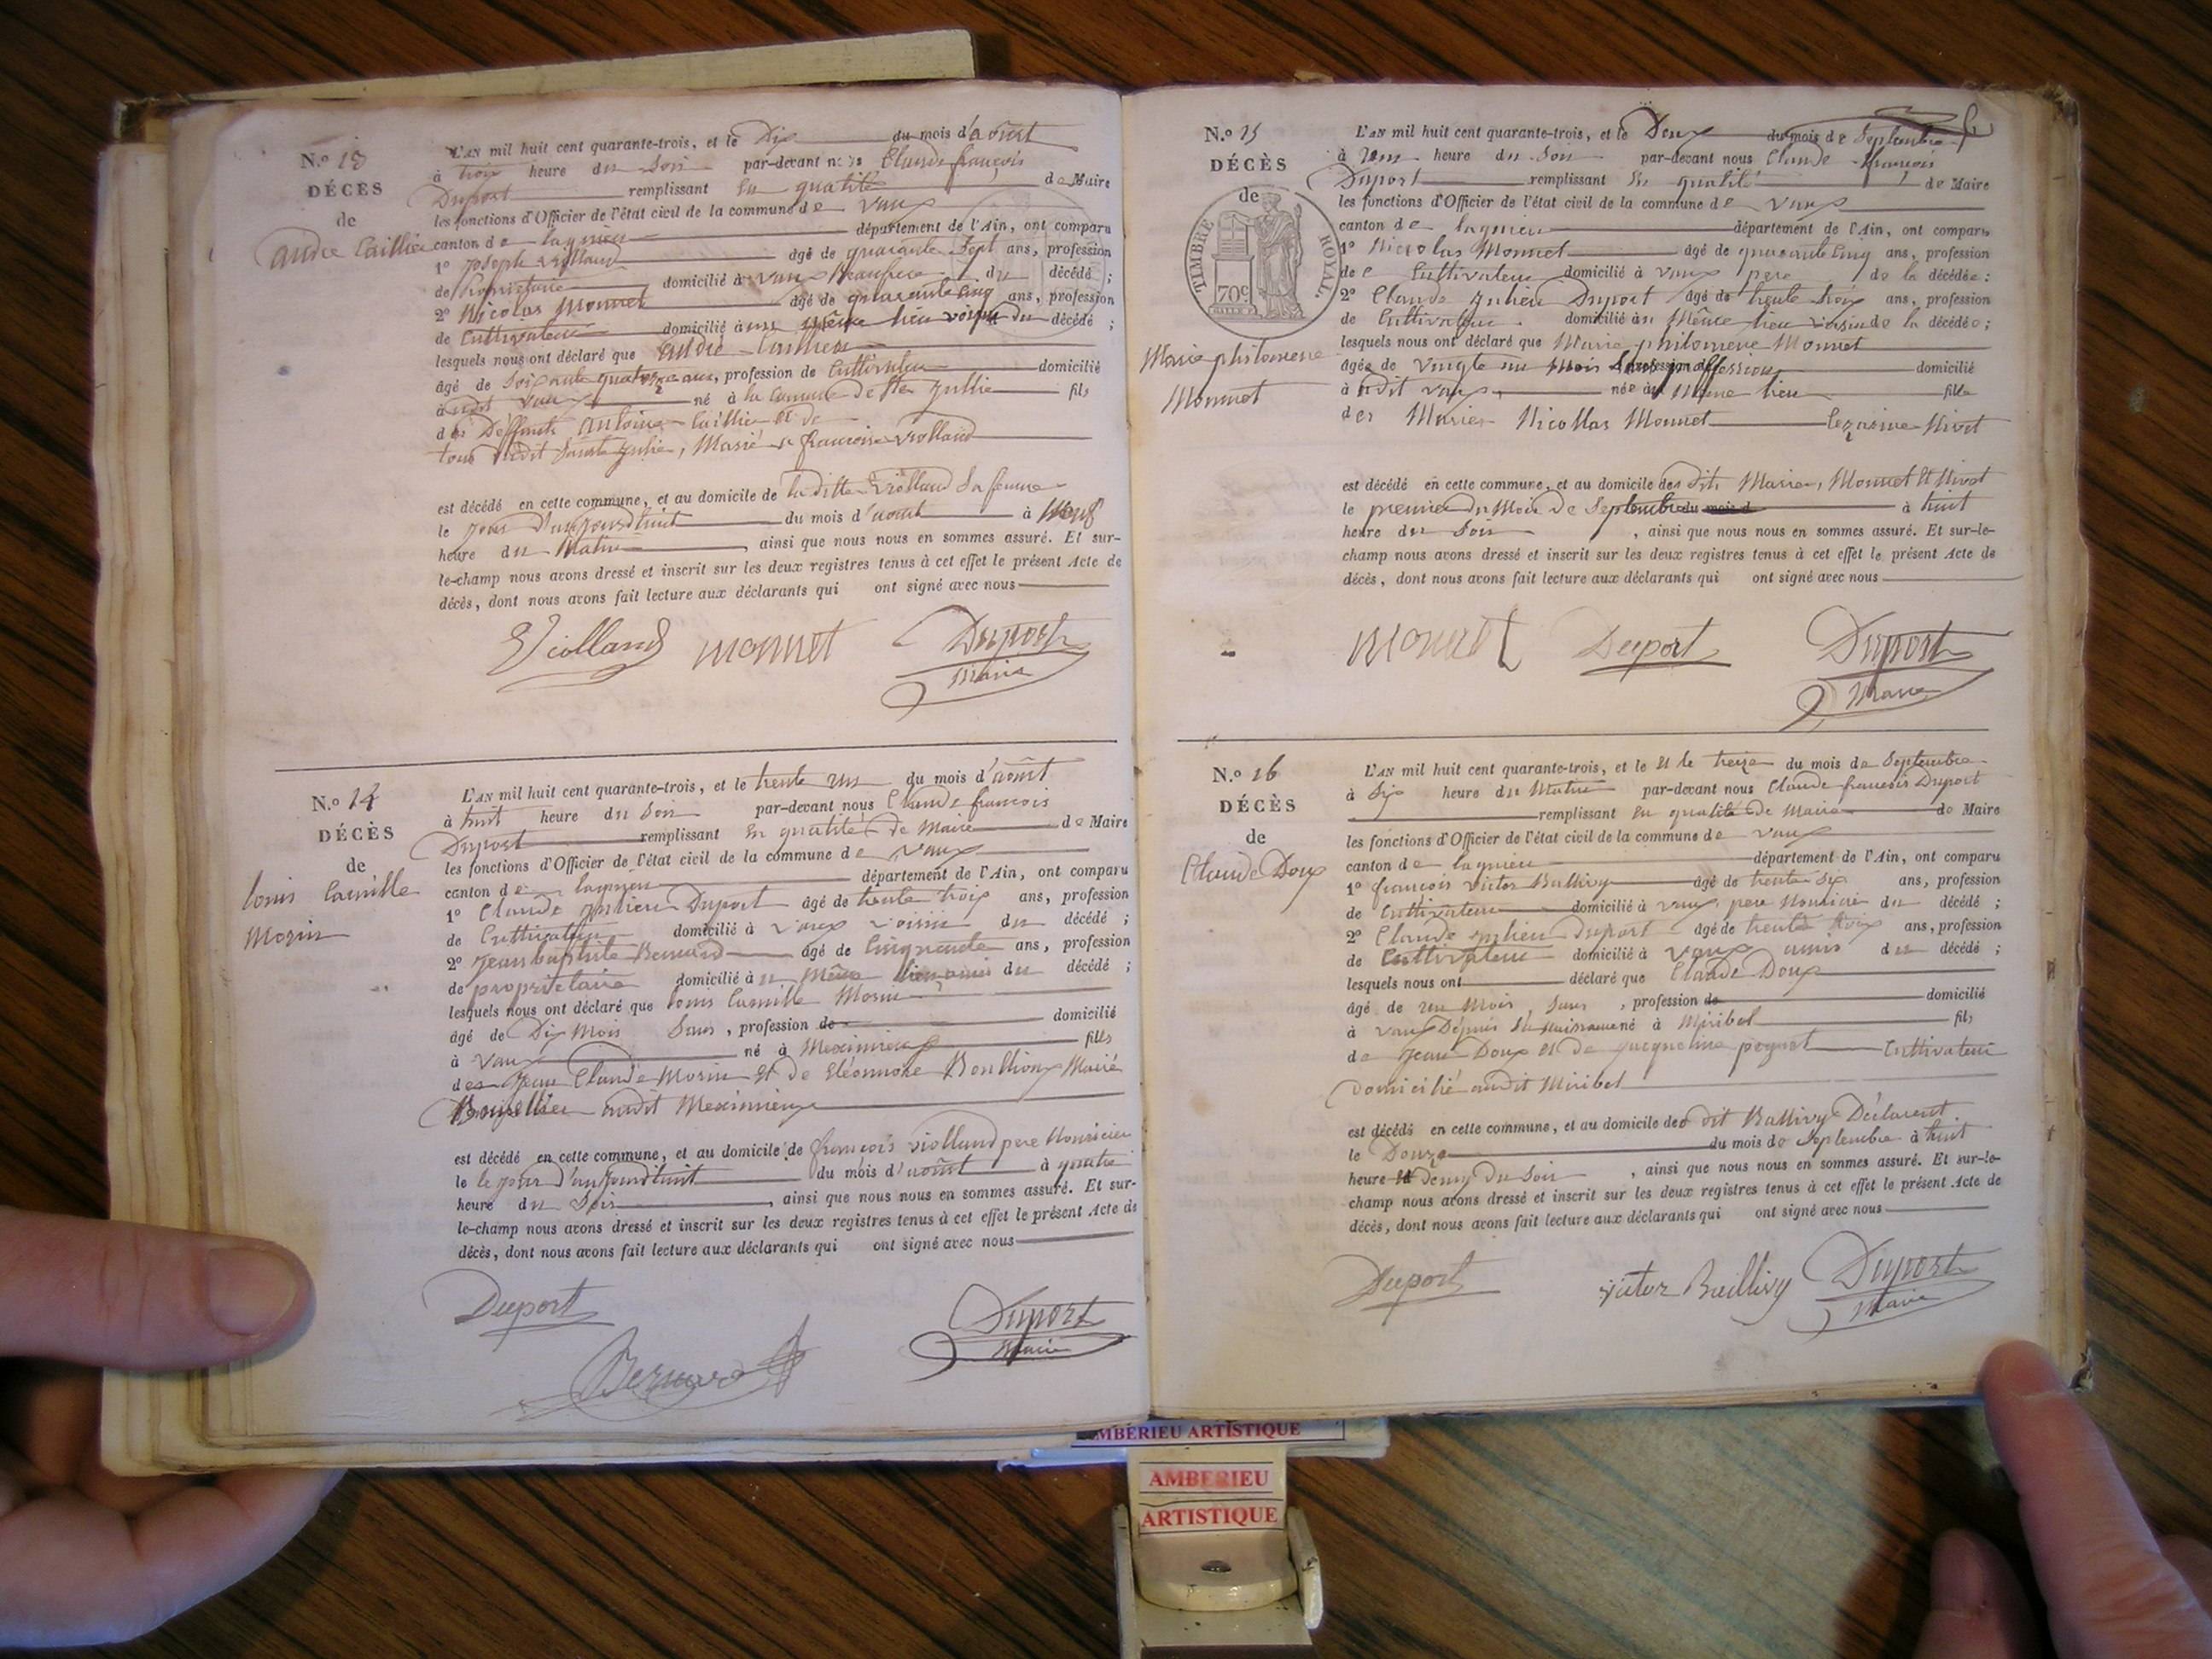 N.º 13
DÉCÈS
de
andré Caillier
L'AN mil huit cent quarante-trois, et le Dix du mois d'aoûst
à trois heure du Soir par-devant nous Claude françois
Duport remplissant En qualité de Maire
les fonctions d'Officier de l'état civil de la commune de Vaux
canton de lagnieu département de l'Ain, ont comparu
1º Joseph Violland agé de quarante Sept ans, profession
de Proprietaire domicilié à vaux Beaufrere du décédé ;
2º Nicolas Monnet agé de quarante Cinq ans, profession
de Cultivateur domicilié au même lieu voisin du décédé ;
lesquels nous ont déclaré que andré Caillier
âgé de Soixante quatorze ans, profession de Cultivateur domicilié
audit vaux né à la Commune de Ste Jullie fils
des Deffunts antoine Caillier et de
tous dudit Sainte Julie, Marié a francoise violland
est décédé en cette commune, et au domicile de la ditte Violland Sa femme
le Jour d'aujourdhuit du mois d'aoust à Neuf
heure du Matin , ainsi que nous nous en sommes assuré. Et sur-
le-champ nous avons dressé et inscrit sur les deux registres tenus à cet effet le présent Acte de
décès, dont nous avons fait lecture aux déclarants qui ont signé avec nous
Violland monnet Duport
Maire
N.º 14
DÉCÈS
de
louis Camille
Morin
L'AN mil huit cent quarante-trois, et le trente un du mois d'aoûst
à huit heure du Soir par-devant nous Claude francois
Duport remplissant En qualité de Maire de Maire
les fonctions d'Officier de l'état civil de la commune de Vaux
canton de lagnieu département de l'Ain, ont comparu
1º Claude Julien Duport âgé de trente trois ans, profession
de Cultivateur domicilié à Vaux voisin du décédé ;
2º Jean baptiste Bernard âgé de Cinquante ans, profession
de proprietaire domicilié au même lieu amis du décédé ;
lesquels nous ont déclaré que louis Camille Morin
âgé de Dix Mois Sans , profession de domicilié
à Vaux né à Meximieux fils
des Jean Claude Morin et de Eléonnore Bonthoux Marié
audit Meximieux
est décédé en cette commune, et au domicile de françois violland pere Nouricier
le le jour d'aujourdhuit du mois d'aoûst à quatre
heure du Soir , ainsi que nous nous en sommes assuré. Et sur-
le-champ nous avons dressé et inscrit sur les deux registres tenus à cet effet le présent Acte de
décès, dont nous avons fait lecture aux déclarants qui ont signé avec nous
Duport Duport
Maire
Bernard
N.º 15
DÉCÈS
de
TIMBRE ROYAL
70c
Marie philomene
Monnet
L'AN mil huit cent quarante-trois, et le Deux du mois de Septembre
à une heure du Soir par-devant nous Claude françois
Duport remplissant En qualité de Maire
les fonctions d'Officier de l'état civil de la commune de Vaux
canton de lagnieu département de l'Ain, ont comparu
1º Nicolas Monnet âgé de quarante Cinq ans, profession
de Cultivateur domicilié à Vaux pere de la décédée :
2º Claude Julien Duport âgé de trente trois ans, profession
de Cultivateur domicilié au Même lieu voisin de la décédée ;
lesquels nous ont déclaré que Marie philomene Monnet
âgée de Vingte un Mois Sans profession domicilié
à udit Vaux, née au Même lieu fille
des Mariés Nicollas Monnet
est décédé en cette commune, et au domicile des dits Mariés, Monnet et Nivot
le premier du Mois de Septembre du mois d à huit
heure du Soir , ainsi que nous nous en sommes assuré. Et sur-le-
champ nous avons dressé et inscrit sur les deux registres tenus à cet effet le présent Acte de
décès, dont nous avons fait lecture aux déclarants qui ont signé avec nous
monnet Duport Duport
Maire
N.º 16
DÉCÈS
de
Claude Doux
L'AN mil huit cent quarante-trois, et le et le treize du mois de Septembre
à Six heure du Matin par-devant nous Claude francois Duport
remplissant En qualité de Maire de Maire
les fonctions d'Officier de l'état civil de la commune de Vaux
canton de lagnieu département de l'Ain, ont comparu
1º françois victor Ballivy âgé de trente Six ans, profession
de Cultivateur domicilié à vaux pere Nouricié du décédé ;
2º Claude Julien Duport âgé de trente trois ans, profession
de Cultivateur domicilié à Vaux amis du décédé ;
lesquels nous ont déclaré que Claude Doux
âgé de un Mois, Sans , profession de domicilié
à vaux Depuis Sa Naissance né à Miribel fils
de Jean Doux et de Jacqueline Cultivateur
Domicilié audit Miribel
est décédé en cette commune, et au domicile de dit Ballivy Déclarent.
le Douze du mois de Septembre à huit
heure et demy du Soir , ainsi que nous nous en sommes assuré. Et sur-le-
champ nous avons dressé et inscrit sur les deux registres tenus à cet effet le présent Acte de
décès, dont nous avons fait lecture aux déclarants qui ont signé avec nous
Duport victor Baillivy Duport
Maire
AMBERIEU ARTISTIQUE
AMBERIEU
ARTISTIQUE